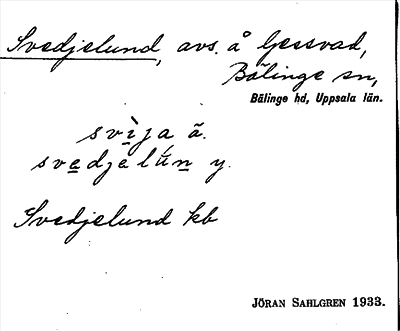 Svedjelund, avs. å Jessvad,
Bälinge sn,
Bälinge hd, Uppsala län.
svìja ä.
svedjelún y.
Svedjelund kb
JÖRAN SAHLGREN 1933.